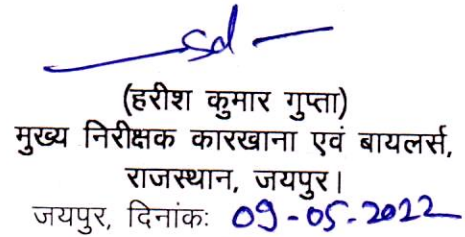 sd
(हरीश कुमार गुप्ता)
मुख्य निरीक्षक कारखाना एवं बायलर्स,
राजस्थान, जयपुर।
जयपुर, दिनांकः 09-05-2022